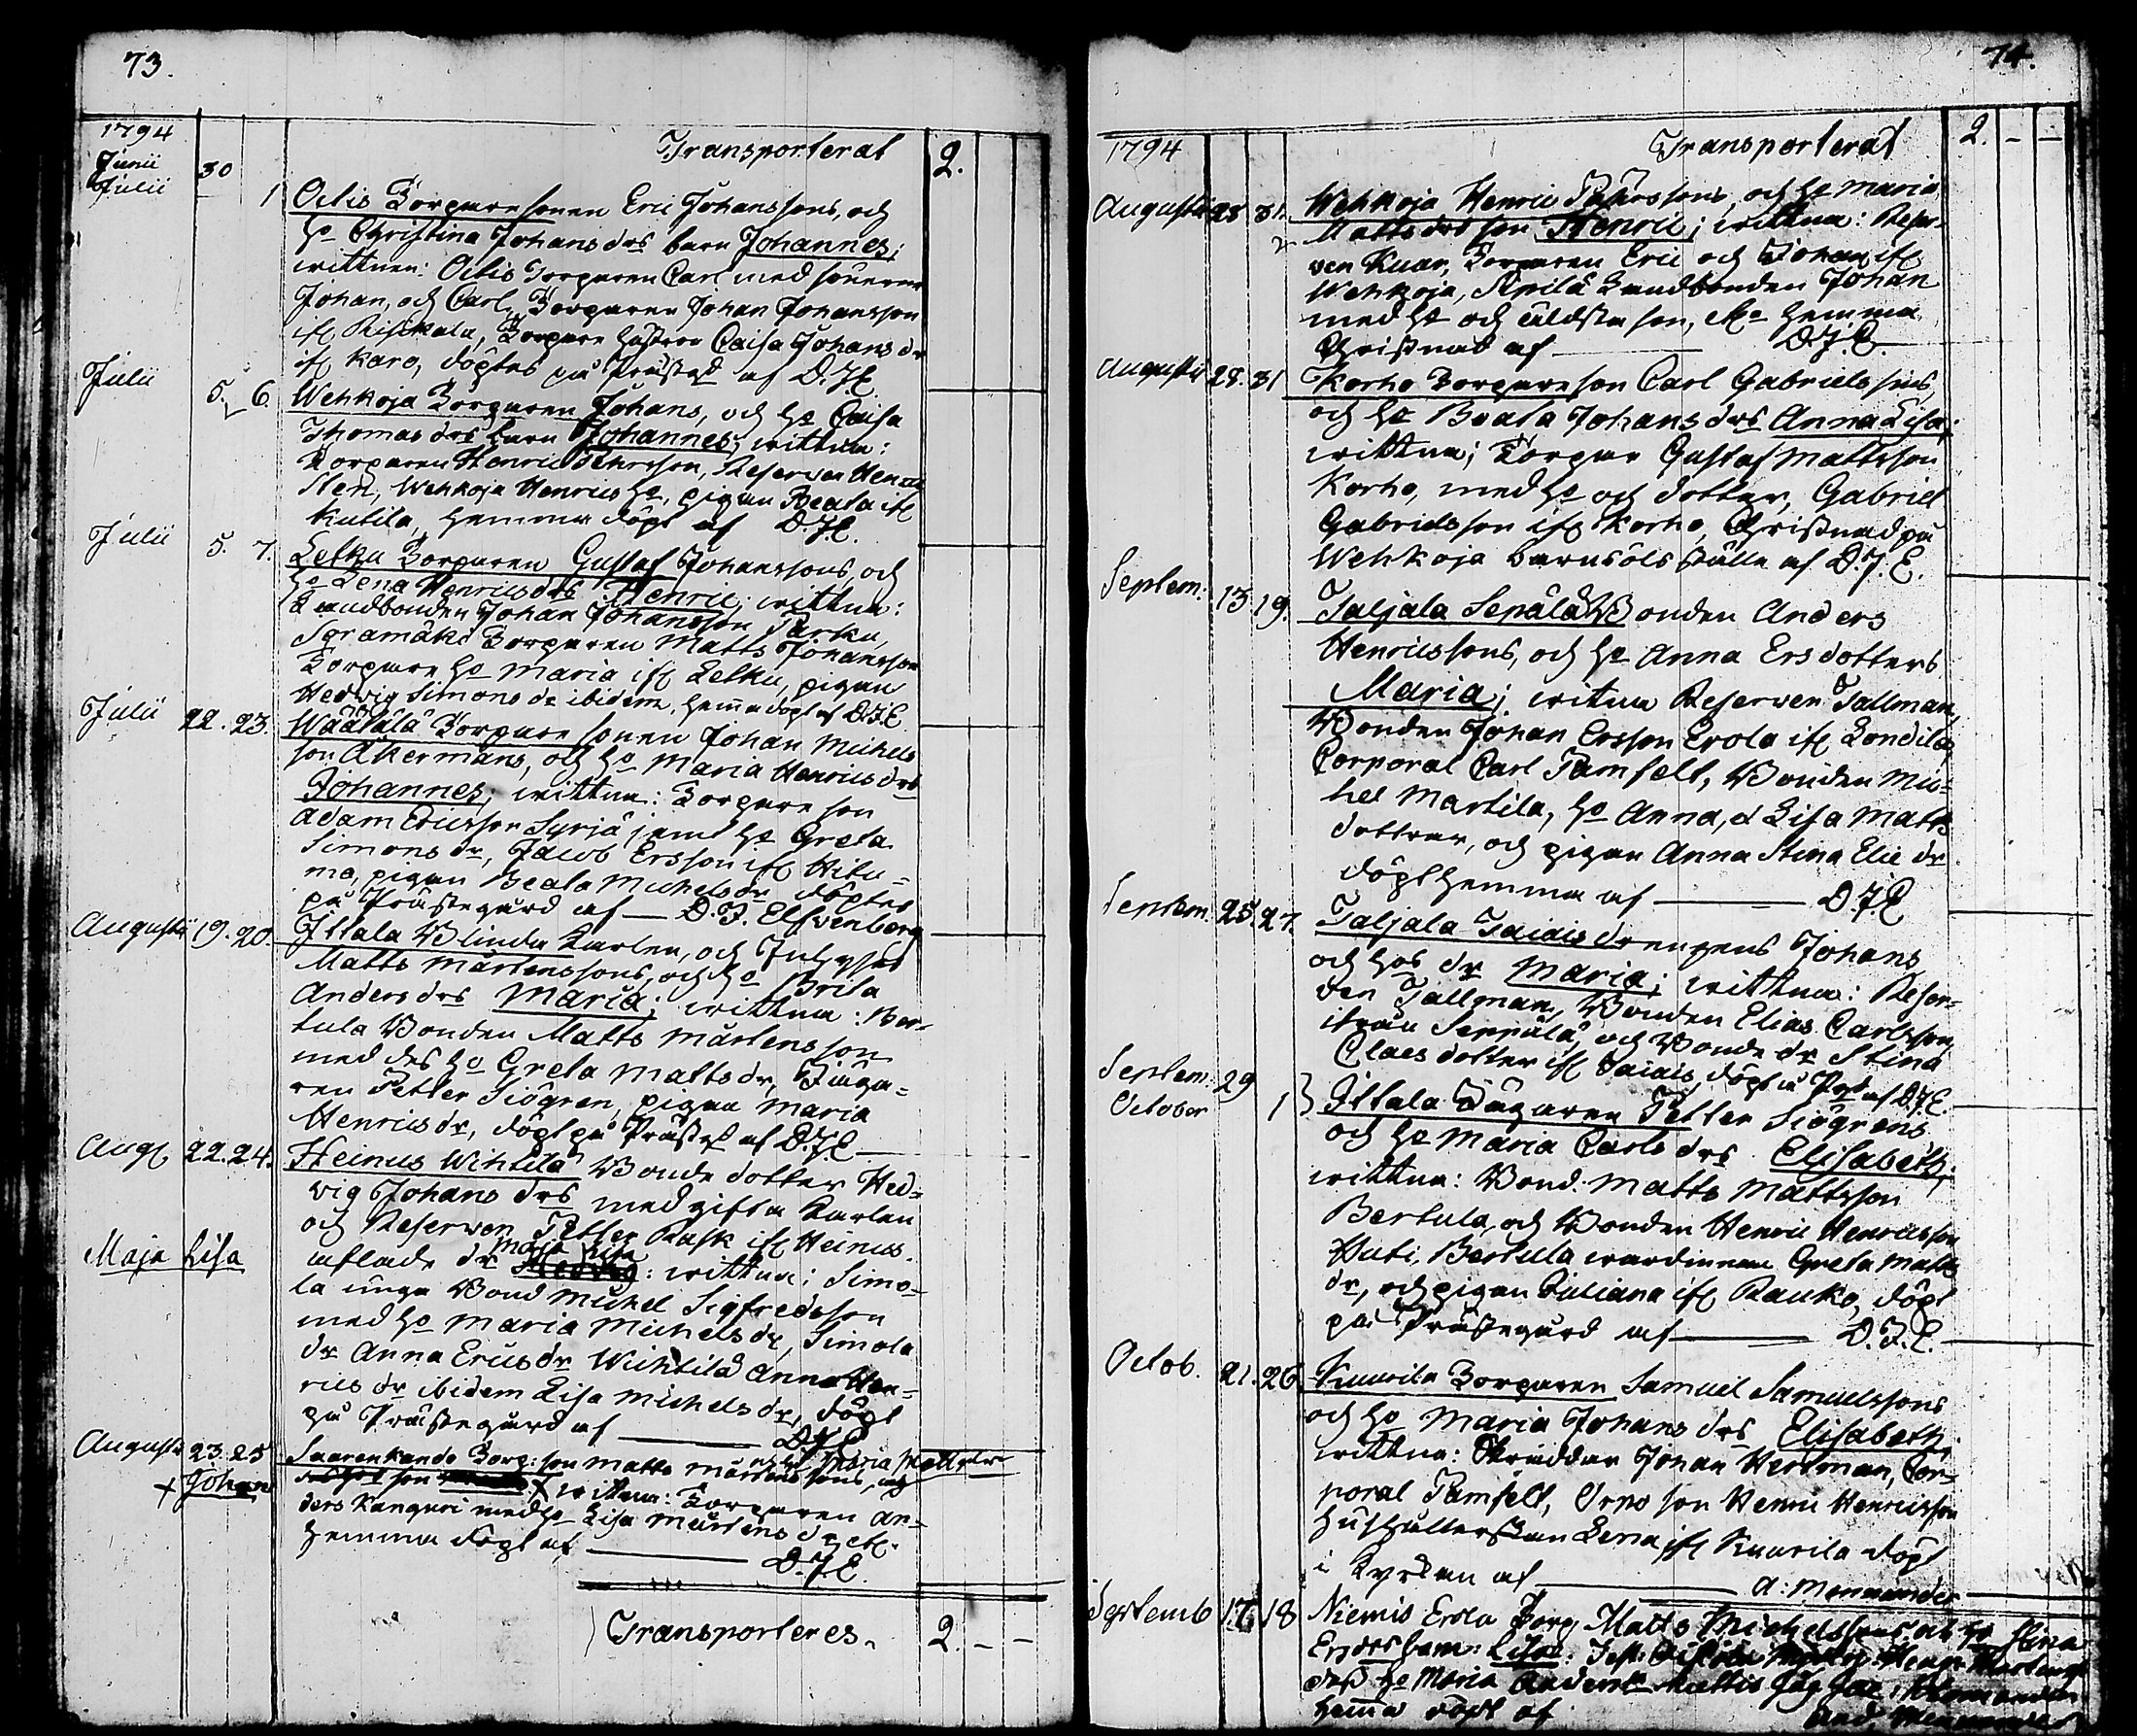 73.
1794
Transporterat 2.
Junii 30
Julii 1 Oelis Torparesonen Eric Johanssons, och
ho Christina Johans drs barn Johannes;
wittnen: Oelis Torparen Carl med sönerne
Johan, och Carl, Torparen Johan Johansson
if. Risikala, Torpare hustrun Caisa Johans dr
if. Karo, döptes på Prästegd af D.J.E.
Julii 5. 6. Wehkoja Torparen Johans, och ho Caisa
Thomas drs barn Johannes; wittna:
Torparen Henric , Reserven Henric
Sten, Wehkoja Henrics ho, pigan Beata if.
Kutila, hemma döpt af D.J.E.
Julii 5. 7. Letku Torparen Gustaf Johanssons, och
ho Lena Henricsdrs Henric; wittna:
Landbonden Johan Johansson Parku,
Torparen Matts Johansson
Torpare ho Maria if. Letku, pigan
Hedvig Simons dr ibidem, hemma döpt af D.J.E.
Julii 22. 23. Wäätälä Torpare sonen Johan Michels
son Åkermans, och ho Maria Henrics drs
Johannes; wittna: Torpare son
Adam Ericsson Syrjä jemt ho Greta
Simons dr, Jacob Ersson if. Hitu=
ma, pigan Beata Michels dr döptes
på Prästegård af — D.J. Elfvenberg
Augustii 19. 20. Ittala Blinda Karlen, och Inhyses
Matts Mårtenssons, och ho Brita
Anders drs Maria; wittna: Ber=
tula Bonden Matts Mårtensson
med des ho Greta Matts dr, Jäga=
ren Petter Siögren, pigan Maria
Henrics dr, döpt på Prästegd af D.J.E.
Aug. 22. 24. Heinus Wihtilä Bonde dotter Hed=
vig Johans drs med gifta Karlen
och Reserven Petter Rask if. Heinus
Maja Lisa
aflade dr Maja Lisa : wittna: Simo=
la unga Bond Michel Sigfredsson
med ho Maria Michels dr, Simola
dr Anna Erics dr Wihtilä Anna Hen=
rics dr ibidem Lisa Michels dr, döpt
på Prästegård af — D.J.E.
Augusti 23. 25 Saarenkando Torp: son Matts Mårtenssons, och ho Maria Matts dr
+ Johan
son + wittna: Torparen An=
ders Kanguri med ho Lisa Mårtens dr etc.
hemma döpt af — D.J.E.
Transporteres. 2. – –
74.
1794
Transporterat 2. – –
Augustii 28. 31. Wehkoja Henric Peterssons, och ho Maria
Matts drs son Henric; wittna: Reser=
ven Kuar, Torparen Eric och Johan if.
Wehkoja, Anilä Landbonden Johan
med ho och äldsta son, hemma
Christnat af — D.J.E.
Augustii 28. 31 Korho Torpareson Carl Gabrielssons,
och ho Beata Johans drs Anna Lisa;
wittna; Torpar Gustaf Mattsson
Korho, med ho och dotter, Gabriel
Gabrielsson if. Korho, Christnad på
Wehkoja barnsöls ställe af D.J.E.
Septem: 13 19. Taljala Sepälä Bonden Anders
Henricssons, och ho Anna Ersdotters
Maria; witna Reserven Tallman,
Bonden Johan Ersson Erola if. Sondila,
Corporal Carl Tamfelt, Bonden Mic=
hel Martila, ho Anna, d Lisa Matts
dotter, och pigan Anna Stina Elie dr
döpt hemma af — D.J.E
Septem. 25. 27. Taljala Taiais drengens Johans
och hos dr Maria; wittna: Reser=
ven Tallman, Bonden Elias Carlsson,
ifrån Seppälä, och Bonde dr Stina
Claes dotter if. Taiais, döpt i Pgd af D.J.E.
Septem: 29
October 1 } Ittala Jägaren Petter Siögrens
och ho Maria Carls drs Elisabeth;
wittna: Bond. Matts Mattsson
Bertula, och Bonden Henric Henricsson
Puti, Bertula wärdinnan Greta Matts
dr, och pigan Juliana if. Rauko, döpt
på Prästegård af — D.J.E.
Octob. 21. 26. Kuurila Torparen Samuel Samuelssons
och ho Maria Johans drs Elisabeth;
wittna: Skräddar Johan Hertman, Cor=
poral Tamfelt, Orno son Henric Henricsson
Hushållerskan Lena if. Kuurila döpt
i Kyrkan af — A: Mennander
Septemb 17. 18 Niemis Erola Torp. Matts Michelssons och ho Stina
Ersdrs barn: Lisa:
ho Maria Anders Mattis
hemma döpt af And. Mennander